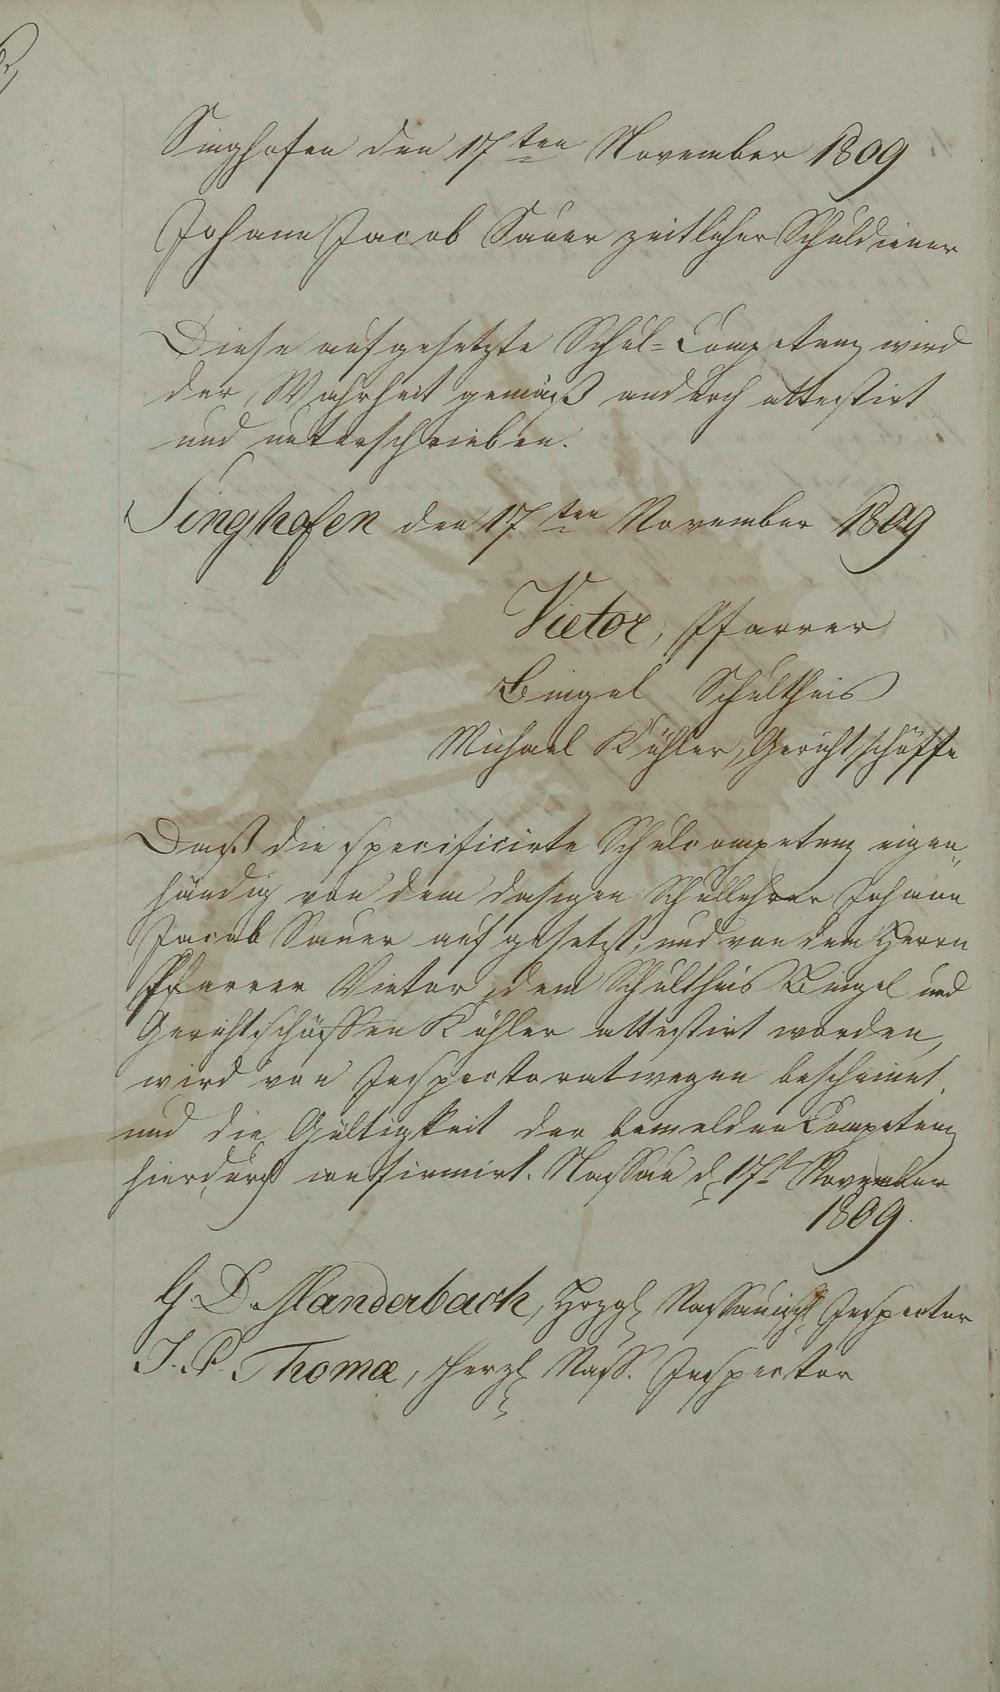 Singhofen den 17ten November 1809
Johann Jacob Sauer zeitlicher Schuldiener
Diese aufgesetzte Schul=Competenz wird
der Wahrheit gemäß andurch attestirt
und unterschrieben.
Singhofen den 17ten November 1809
Vietor, Pfarrer
Bingel Schultheis
Michael Köhler, Gerichtschöffe
Daß die specificirte Schulcompetenz eigen„
händig von dem dasigen Schullehrer Johann
Jacob Sauer aufgesetzt, und von dem Herrn
Pfarrer Vietor, dem Schultheis Bingel und
Gerichtschöffen Köhler attestirt worden,
wird von Inspectoratwegen bescheinet,
und die Gültigkeit der bemelden Competenz
hierdurch confirmirt. Nassau d 17t November
1809.
G. D. Manderbach, Herzgl Nassauisch Inspector
J. P. Thomæ, Herzl Nass. Inspector